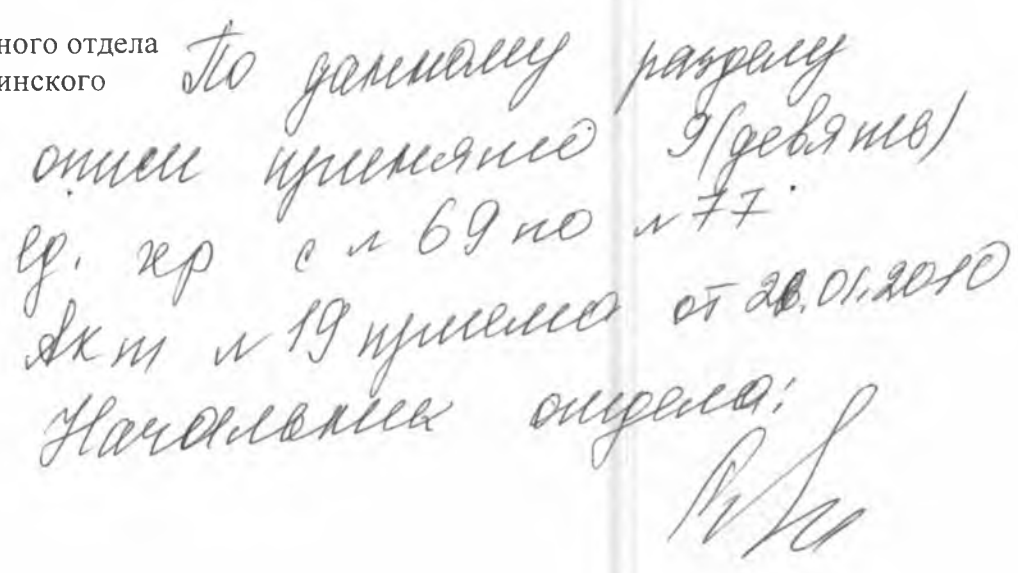 ного отдела
инского
По данному разделу
описи принято 9 (девять)
ед. хр с № 69 по № 77
Акт № 19 приема от 2 .01.2010
Начальник отдела: